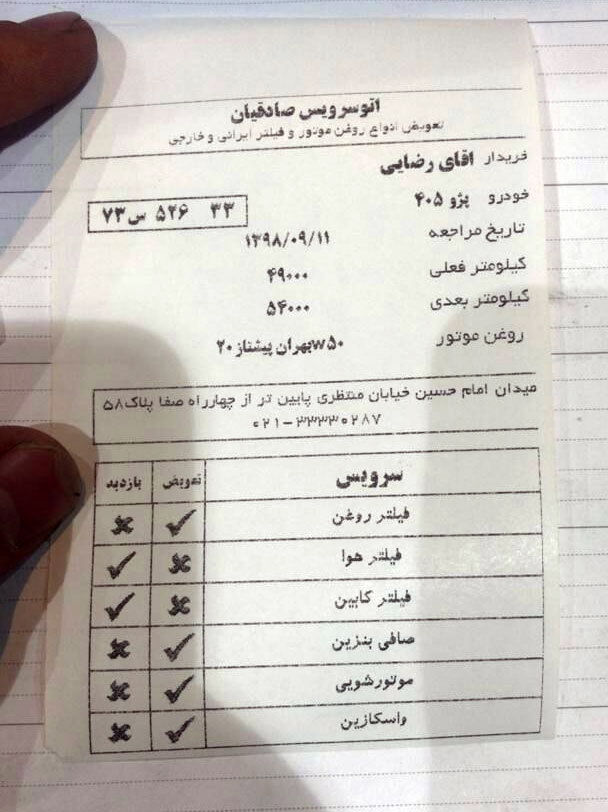 اتوسرویس صادقیان
تعویض انواع روغن موتور و فیلتر ایرانی و خارجی
خریدار اقای رضایی
خودرو پژو ۴۰۵
۳۳ ۵۲۶ س ۷۳
تاریخ مراجعه ۱۳۹۸/۰۹/۱۱
کیلومتر فعلی ۴۹۰۰۰
کیلومتر بعدی ۵۴۰۰۰
روغن موتور بهران پیشتاز ۲۰w۵۰
میدان امام حسین خیابان منتظری پایین تر از چهارراه صفا پلاک ۵۸
۰۲۱-۳۳۳۳۰۲۸۷
سرویس تعویض بازدید
فیلتر روغن ✓ ✗
فیلتر هوا ✗ ✓
فیلتر کابین ✗ ✓
صافی بنزین ✓ ✗
موتورشویی ✓ ✗
واسکازین ✓ ✗